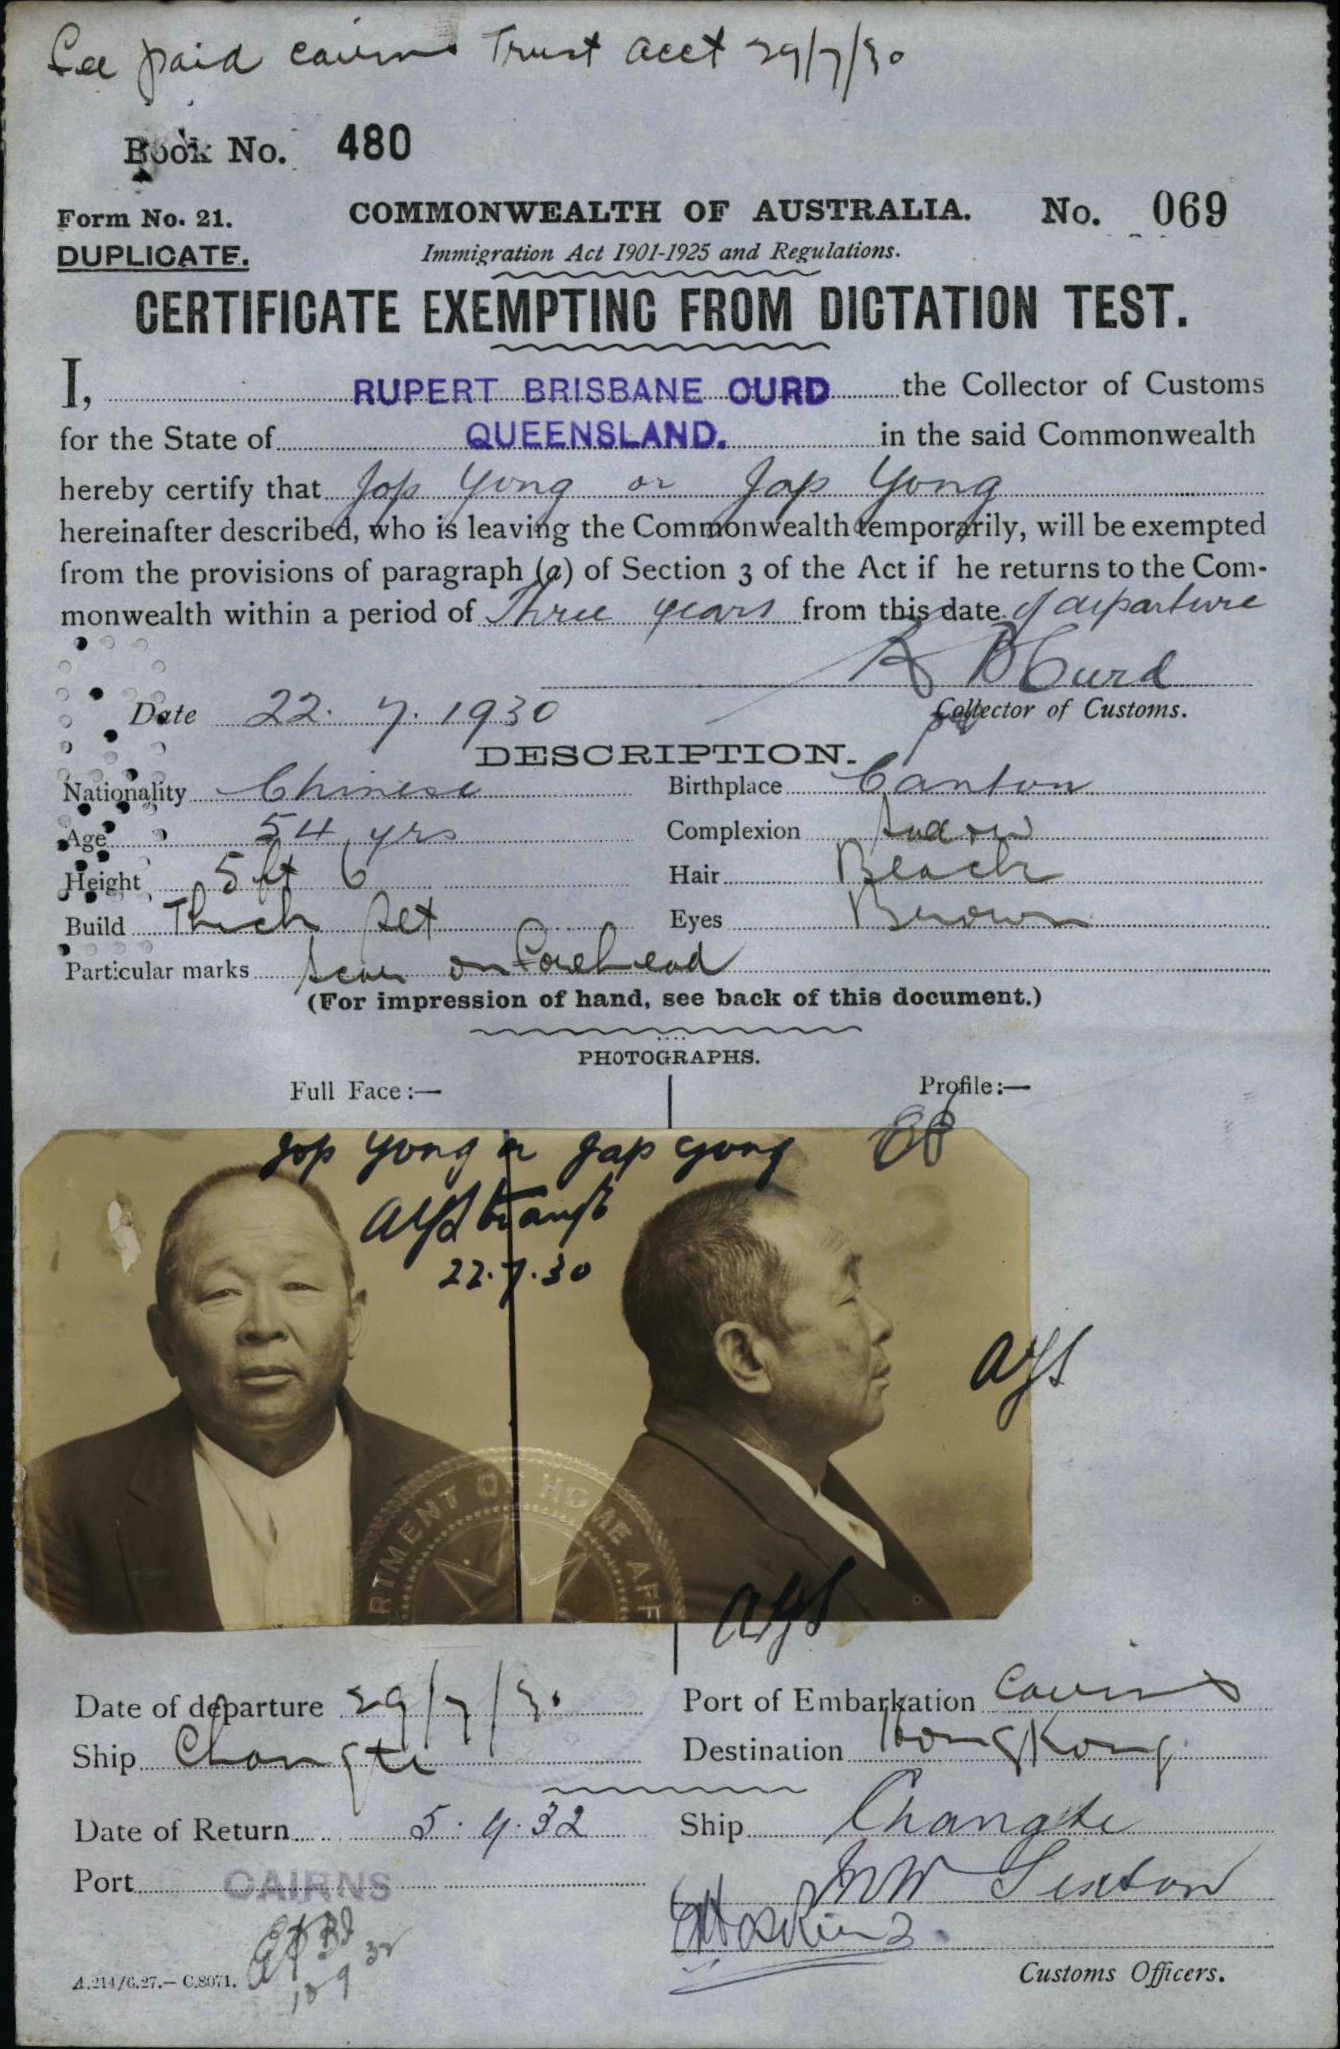 Fee paid Cairns Trust acct 29/7/30
Book No. 480
Form No. 21. COMMONWEALTH OF AUSTRALIA. No. 069
DUPLICATE. Immigration Act 1901-1925 and Regulations.
CERTIFICATE EXEMPTING FROM DICTATION TEST.
I, RUPERT BRISBANE CURD the Collector of Customs
for the State of QUEENSLAND. in the said Commonwealth
hereby certify that Jop Yong or Jap Yong
hereinafter described, who is leaving the Commonwealth temporarily, will be exempted
from the provisions of paragraph (a) of Section 3 of the Act if he returns to the Com-
monwealth within a period of Three years from this date of departure
R B Curd
Date 22.7.1930 Collector of Customs.
DESCRIPTION.
Nationality Chinese Birthplace Canton
Age 54 yrs Complexion
Height 5 ft 6 Hair Black
Build Thick set Eyes Brown
Particular marks Scar on Forehead
(For impression of hand, see back of this document.)
PHOTOGRAPHS.
Full Face:— Profile:—
Jop Yong or Jap Yong
22.7.30
AYS
RTMENT OF HOME AFF
AYS
Date of departure 29/7/30 Port of Embarkation Cairns
Ship Changte Destination Hong Kong
Date of Return 5.9.32 Ship Changte
Port CAIRNS
E Hoskins
A.214/6.27.—C.8071. Customs Officers.